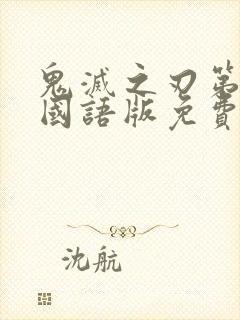 鬼滅之刃第
國語版免費
沈航